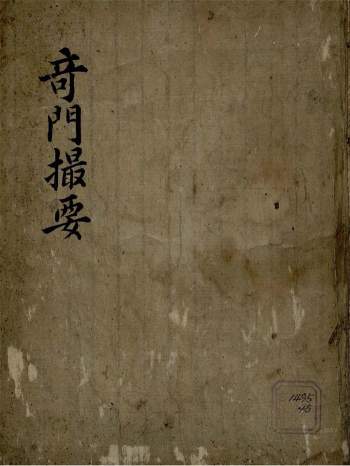 奇門撮要
1495
45